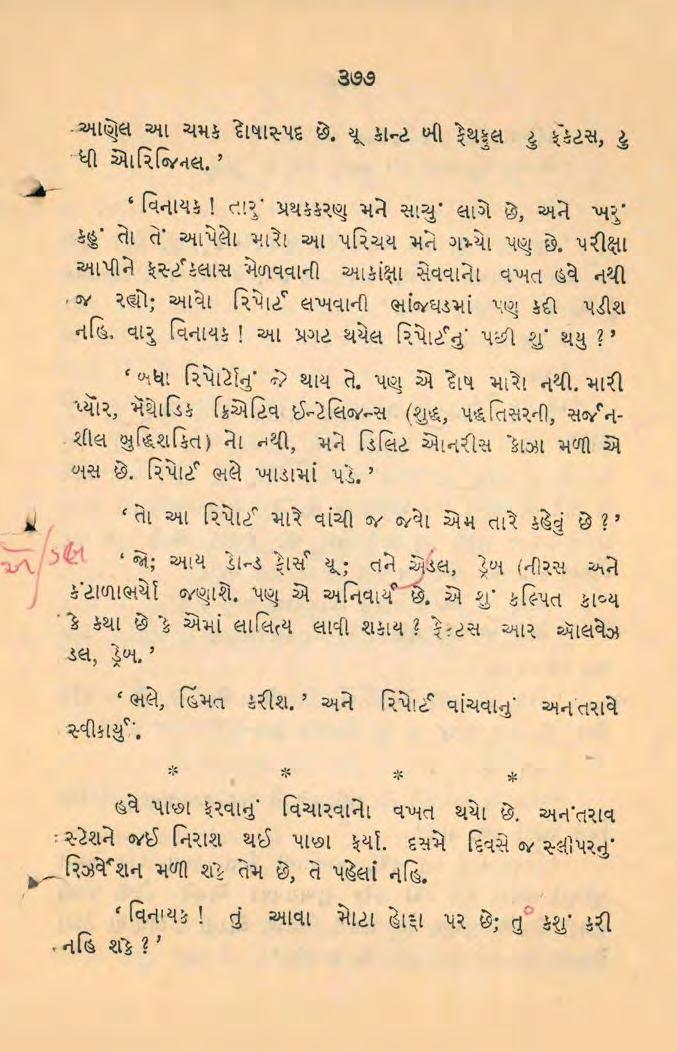 ૩૭૭
આણેલ આ ચમક દોષાસ્પદ છે. યૂ કાન્ટ બી ફેથફુલ ટુ ફૅકટસ, ટુ
ધી ઓરિજિનલ.’
‘ વિનાયક ! તારું પ્રથક્કરણ મને સાચું લાગે છે, અને ખરું
કહું તો તેં આપેલો મારો આ પરિચય મને ગમ્યો પણ છે. પરીક્ષા
આપીને ફર્સ્ટકલાસ મેળવવાની આકાંક્ષા સેવવાનો વખત હવે નથી
જ રહ્યો; આવો રિપોર્ટ લખવાની ભાંજઘડમાં પણ કદી પડીશ
નહિ. વારુ વિનાયક ! આ પ્રગટ થયેલ રિપોર્ટનું પછી શું થયુ ? ’
‘ બધા રિપોર્ટોનું જે થાય તે. પણ એ દોષ મારો નથી. મારી
પ્યૉર, મૅથોડિક ક્રિએટિવ ઈન્ટેલિજન્સ (શુદ્ધ, પદ્ધતિસરની, સર્જન-
શીલ બુદ્ધિશકિત) નો નથી, મને ડિલિટ ઓનરીસ કોઝા મળી એ
બસ છે. રિપોર્ટ ભલે ખાડામાં પડે. ’
‘ તો આ રિપોર્ટ મારે વાંચી જ જવો એમ તારે કહેવું છે ? ’
ઍ/ડલ ‘ જો; આય ડોન્ડ ફોર્સ યૂ; તને એડલ, ડ્રેબ (નીરસ અને
કંટાળાભર્યો જણાશે. પણ એ અનિવાર્ય છે. એ શું કલ્પિત કાવ્ય
કે કથા છે કે એમાં લાલિત્ય લાવી શકાય ? ફેકટસ આર ઑલવેઝ
ડલ, ડ્રેબ. ’
‘ ભલે, હિંમત કરીશ. ’ અને રિપોર્ટ વાંચવાનું અનંતરાવે
સ્વીકાર્યું.
* * * *
હવે પાછા ફરવાનું વિચારવાનો વખત થયો છે. અનંતરાવ
સ્ટેશને જઈ નિરાશ થઈ પાછા ફર્યા. દસમે દિવસે જ સ્લીપરનું
રિઝર્વેશન મળી શકે તેમ છે, તે પહેલાં નહિ.
‘ વિનાયક ! તું આવા મોટા હોદ્દા પર છે; તું કશું કરી
નહિ શકે ? ’